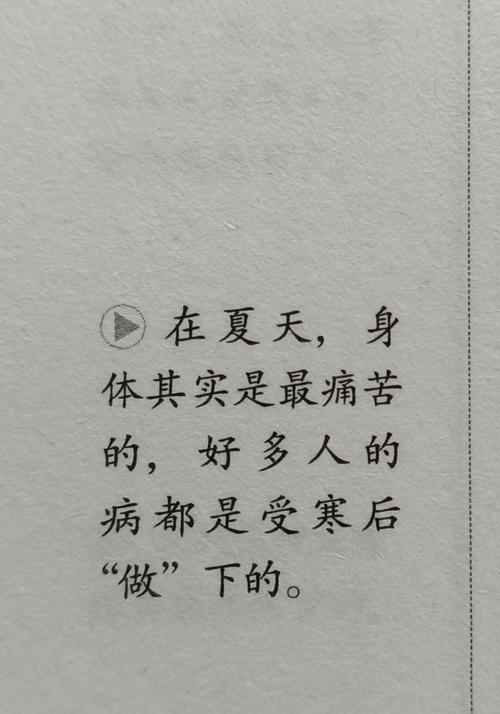 在夏天，身
体其实是最痛苦
的，好多人的
病都是受寒后
“做”下的。